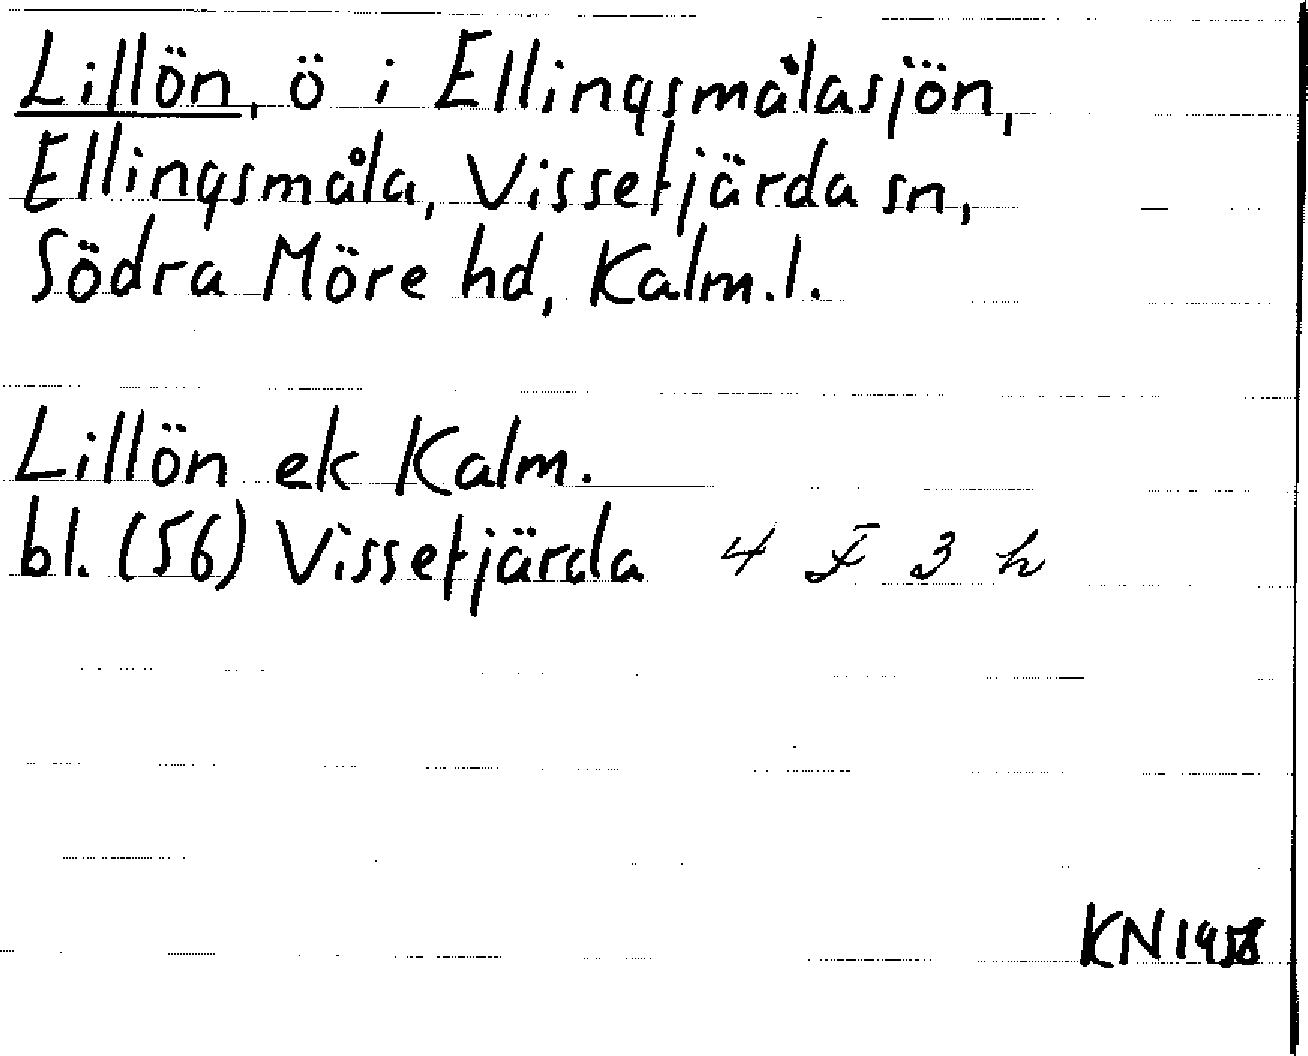 Lillön, ö i Ellingsmålasjön,
Ellingsmåla, Vissefjärda sn,
Södra Möre hd, Kalm.l.
Lillön ek Kalm.
bl. (56) Vissefjärda 4 F 3 h
KN 1958